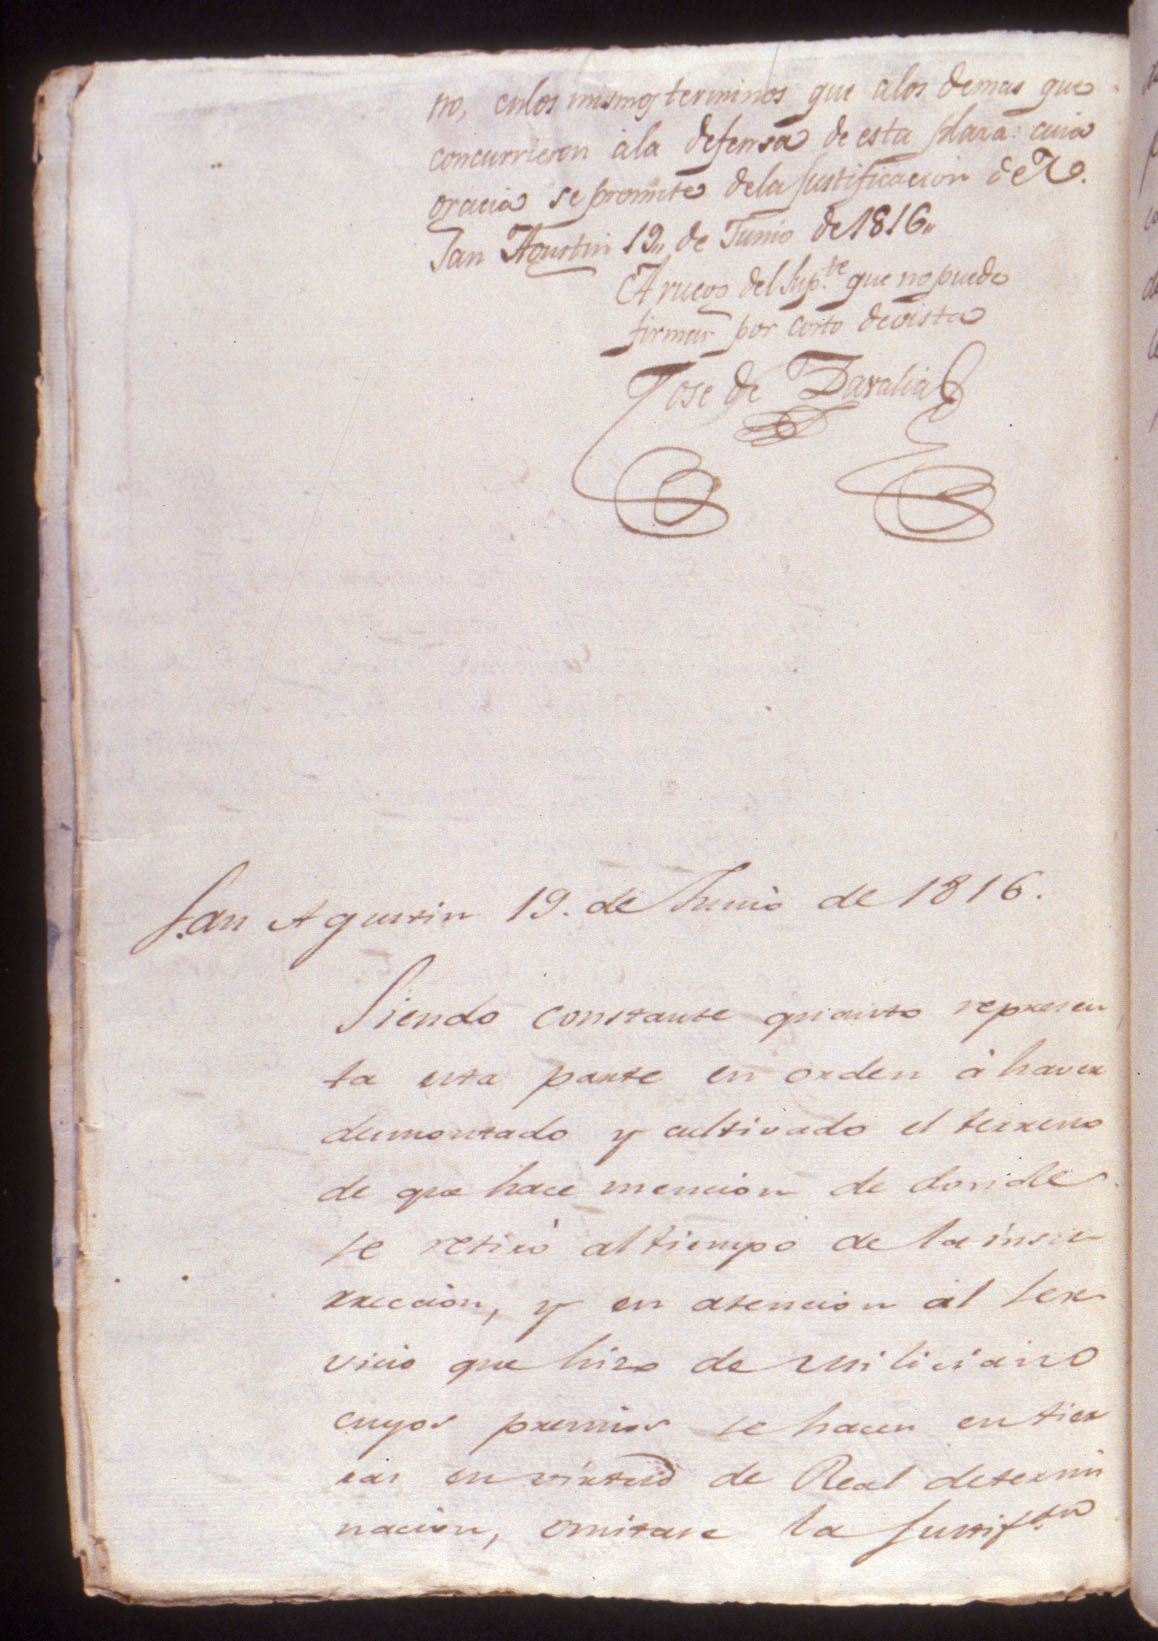 no, enlos mismos terminos que alos demas que
concurrieron ála defensa de esta plaza: cuia
gracia se promete dela Justificacion de V.
San Agustin 19,, de Junio de 1816,,
A ruego del Sup.te que no puede
firmar por corto de vista
Jose de Zavalia
San Agustin 19. de Junio de 1816.
Siendo constante quanto represen
ta esta parte en orden á haver
desmontado y cultivado el terreno
de que hace mencion de donde
se retiró al tiempo de la insu-
rreccion, y en atencion al ser
vicio que hizo de Miliciano
cuyos premios se hacen en tier
ras en virtud de Real determi
nacion, omitase la Justif.on